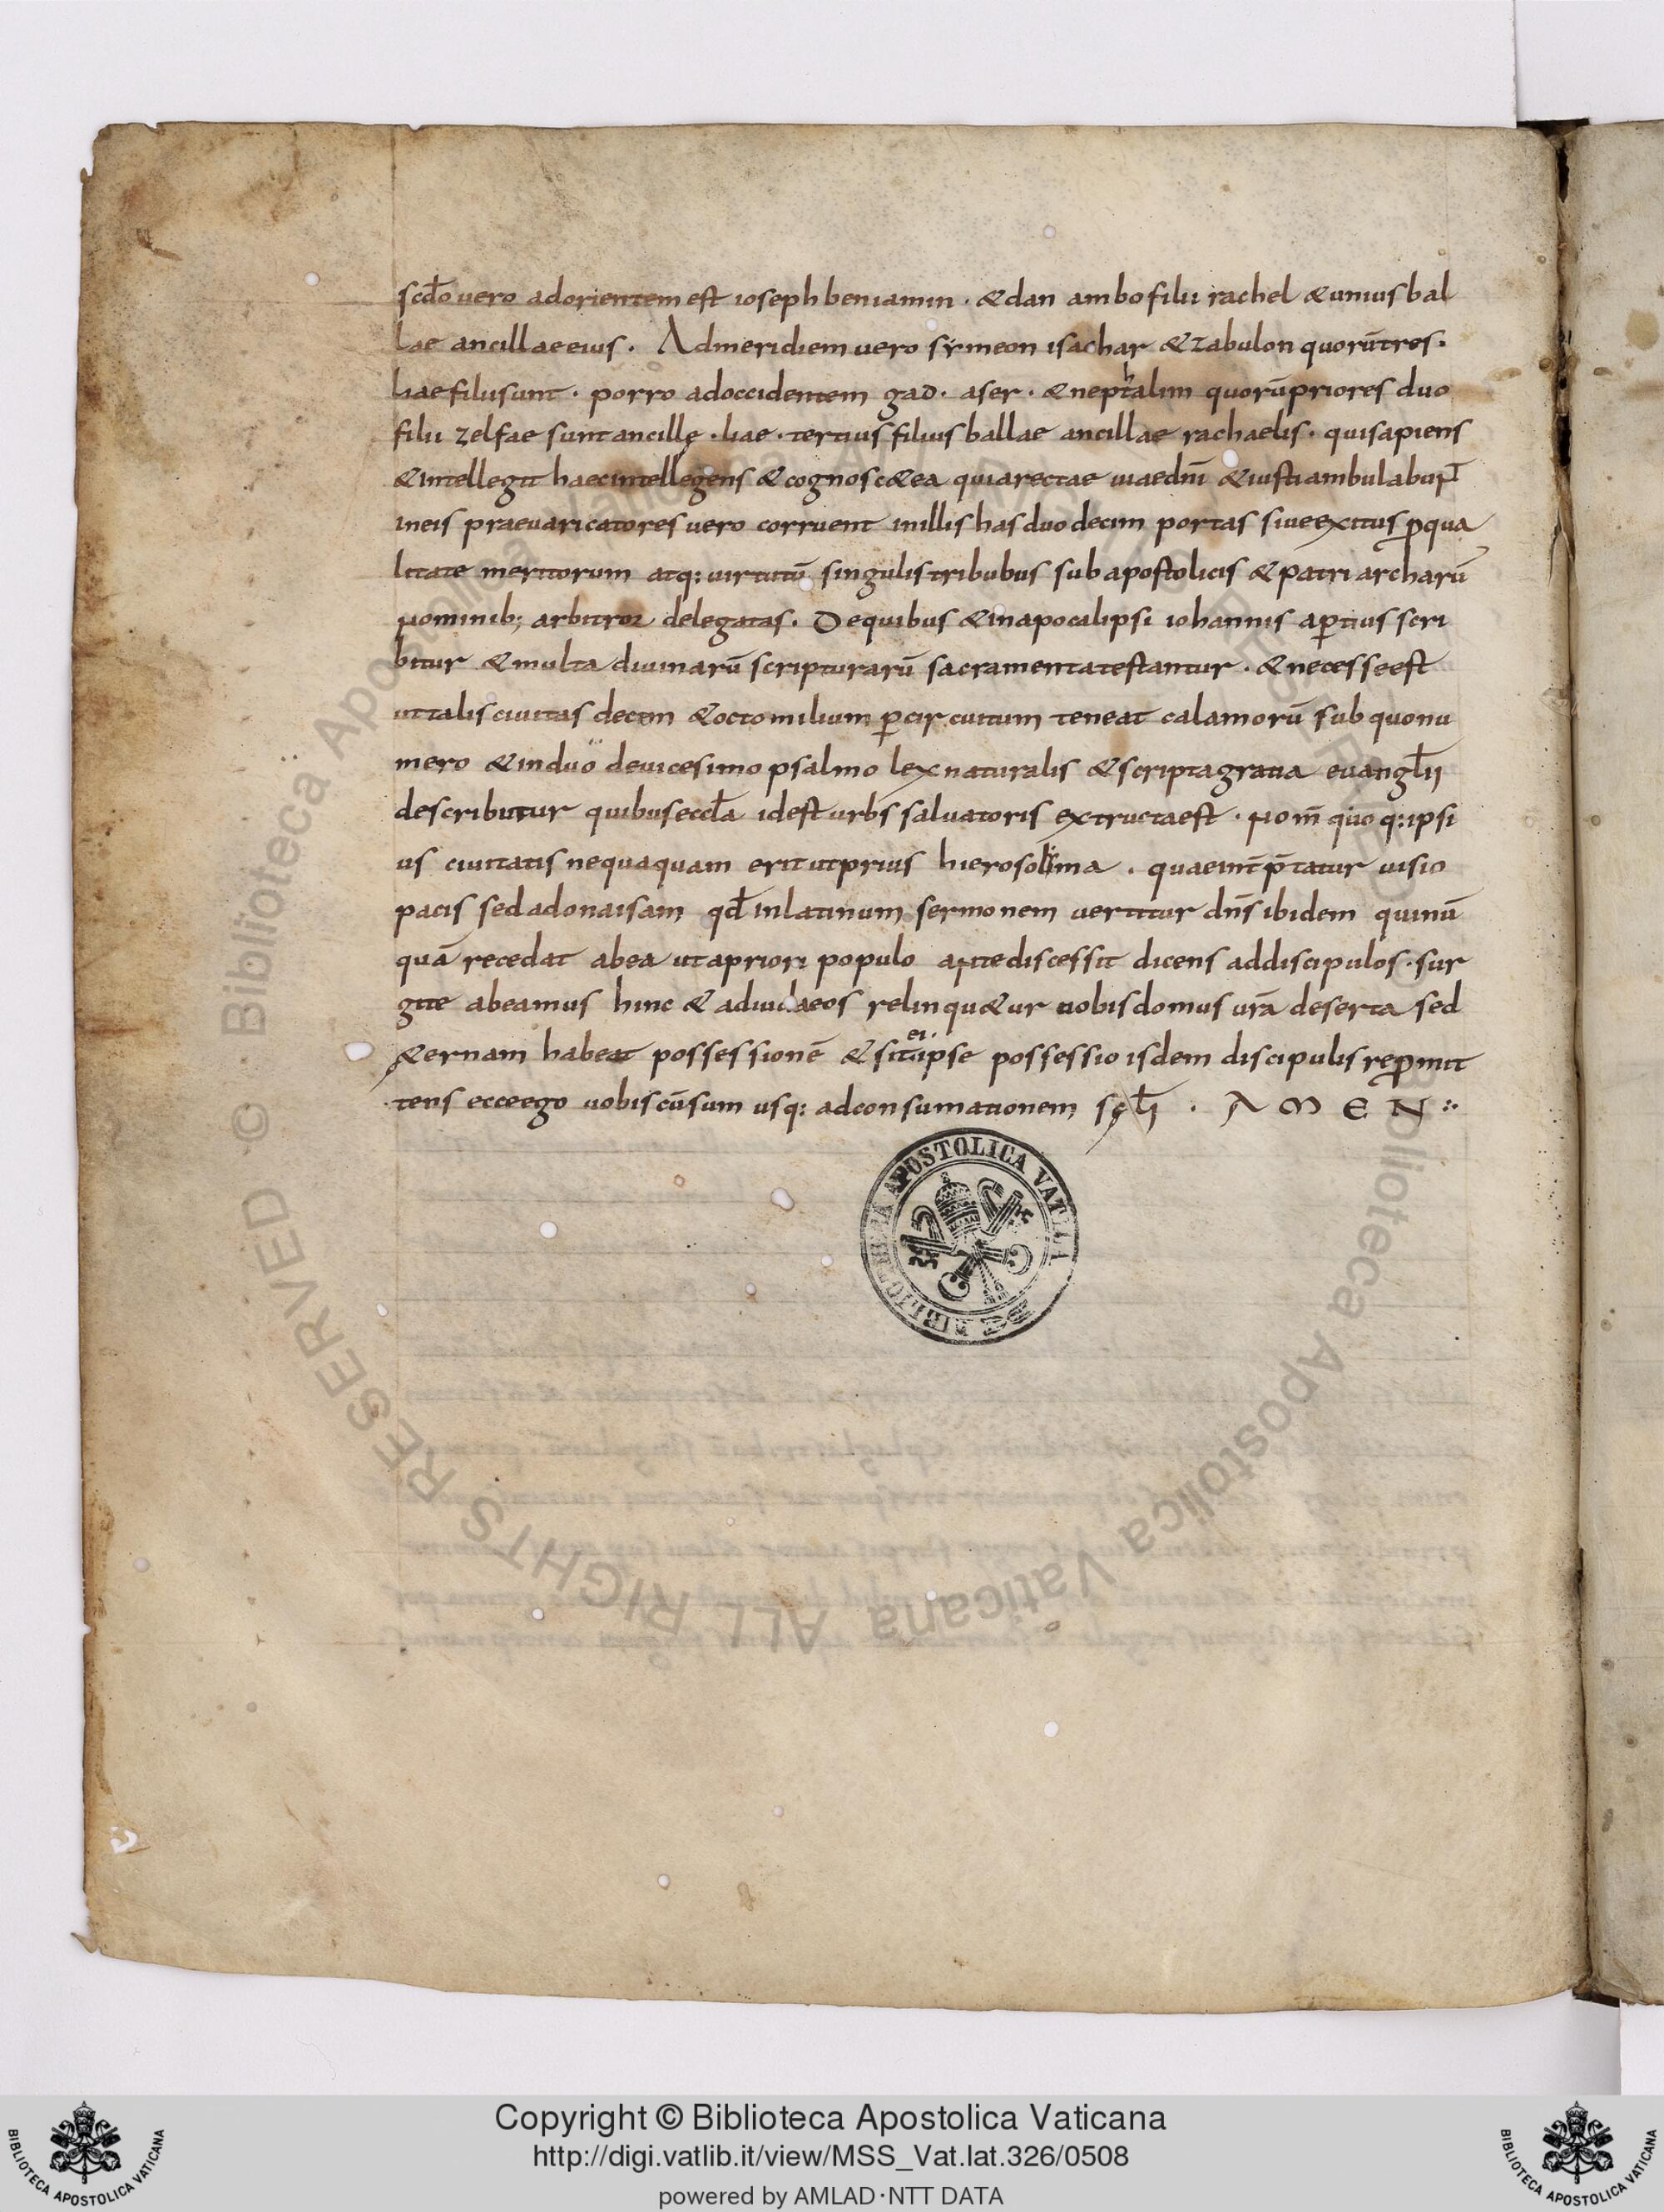 scdo uero ad orientem est ioseph beniamin · & dan ambo filii rachel & unius bal
lae ancillae eius · Ad meridiem uero symeon isachar & zabulon quorū tres ·
liae filii sunt · porro ad occidentem gad · aser · & neptalim quorū priores duo
filii zelfae sunt ancillę · liae · tertius filius ballae ancillae rachaelis · qui sapiens
& intellegit haec intellegens & cognosc& ea quia rectae uiae dnī & iusti ambulabuɴt̄
in eis praeuaricatores uero corruent in illis has duodecim portas siue exitus ꝑ qua
litate meritorum atq: uirtutū singulis tribubus sub apostolicis & patriarcharū
nominib; arbitror delegatas · De quibus & in apocalipsi iohannis aꝑtius scri
bitur & multa diuinarū scripturarū sacramenta testantur · & necesse est
ut talis ciuitas decem & octo milium ꝑ circuitum teneat calamorū sub quo nu
mero & in duo deuicesimo psalmo lex naturalis & scripta gratia euangl̄ii
describitur quibus eccl̄a id est urbs saluatoris extructa est · nom̄ quoq: ipsi
us ciuitatis nequaquam erit ut prius hierosolima · quae int̄p̄tatur uisio
pacis sed adonaisam qd̄ in latinum sermonem uertitur dn̄s ibidem qui nū
quā recedat ab ea ut a priori populo ante discessit dicens ad discipulos · sur
gite abeamus hinc & ad iudaeos relinqu&ur uobis domus ur̄a deserta sed
&ernam habeat possessionē & sit ei ipse possessio isdem discipulis reꝑmit
tens ecce ego uobiscū sum usq: ad consumationem scl̄i · A M E N :·
BIBLIOTHECA APOSTOLICA VATICANA
© Biblioteca Apostolica Vaticana ALL RIGHTS RESERVED
Copyright © Biblioteca Apostolica Vaticana
http://digi.vatlib.it/view/MSS_Vat.lat.326/0508
powered by AMLAD·NTT DATA
BIBLIOTECA APOSTOLICA VATICANA
BIBLIOTECA APOSTOLICA VATICANA